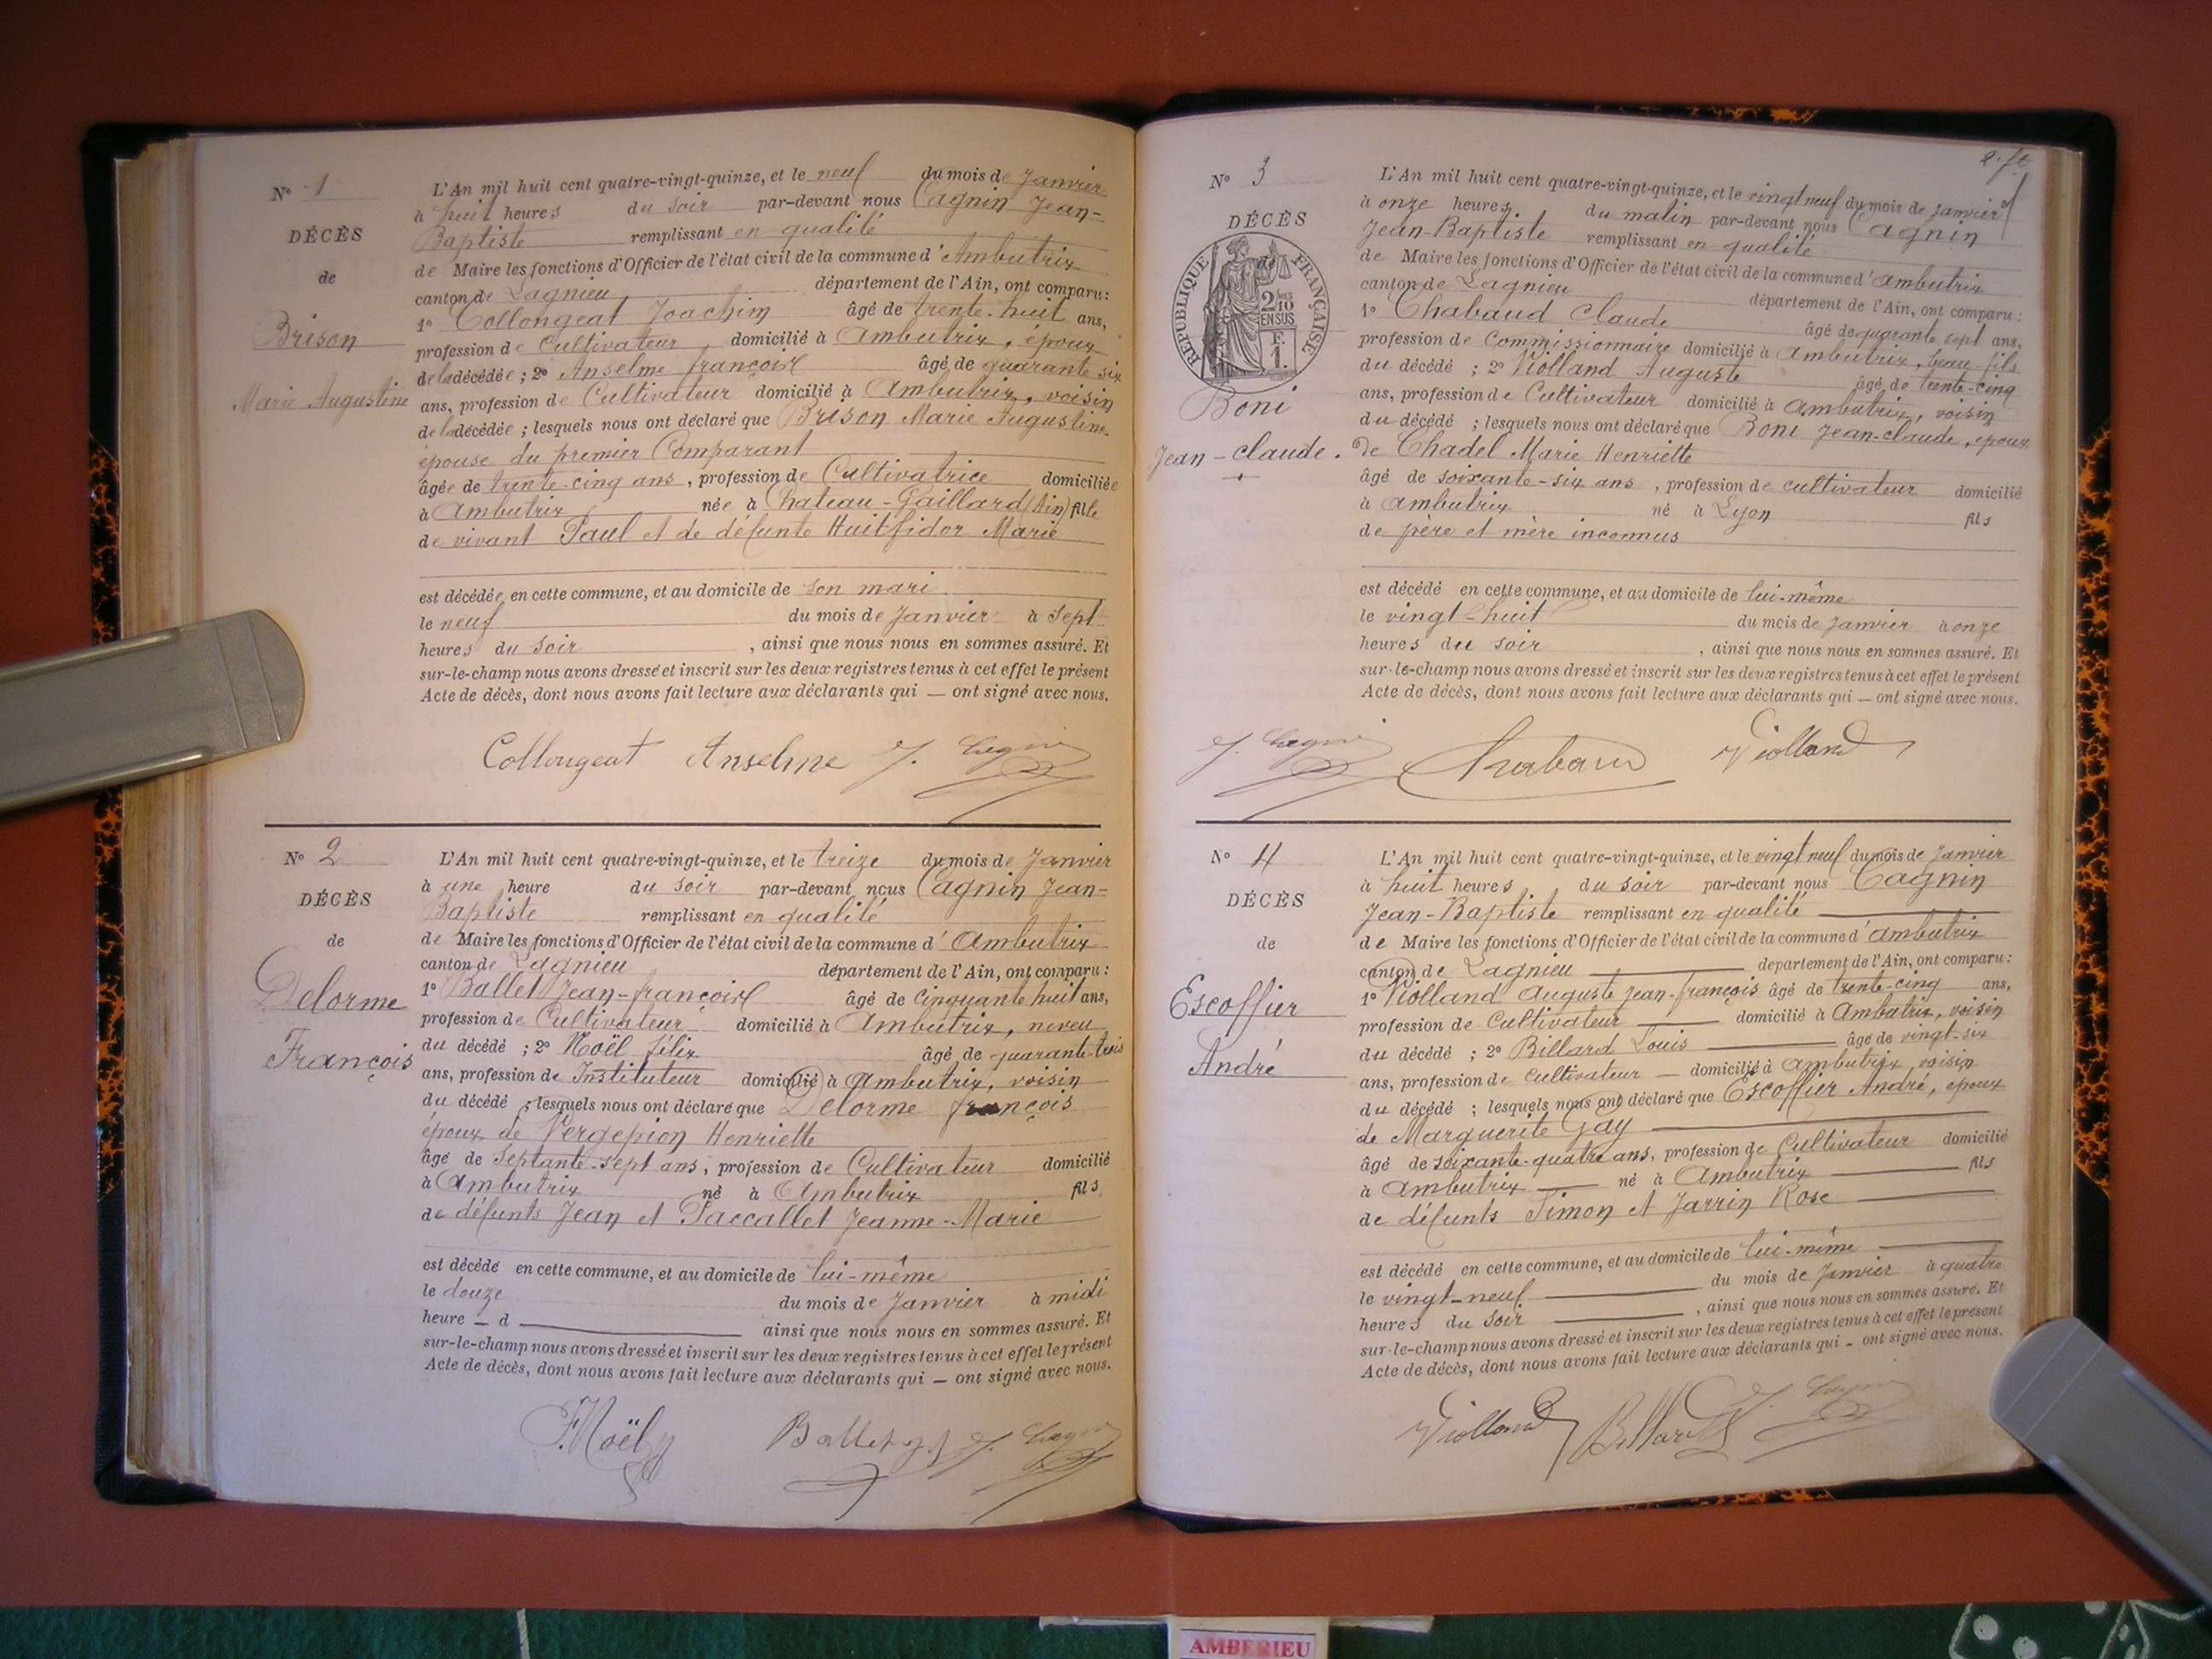 N° 1
DÉCÈS
de
Brison
Marie Augustine
L'An mil huit cent quatre-vingt-quinze, et le neuf du mois de Janvier
à huit heures du soir par-devant nous Cagnin Jean-
Baptiste remplissant en qualité
de Maire les fonctions d'Officier de l'état civil de la commune d'Ambutrix
canton de Lagnieu département de l'Ain, ont comparu:
1° Collongeat Joachim âgé de trente-huit ans,
profession de Cultivateur, domicilié à Ambutrix, époux
de la décédée; 2° Anselme françois âgé de quarante six
ans, profession de Cultivateur domicilié à Ambutrix, voisin
de la décédée; lesquels nous ont déclaré que Brison Marie Augustine
épouse du premier Comparant
âgée de trente-cinq ans, profession de Cultivatrice domiciliée
à Ambutrix née à Chateau-Gaillard (Ain) fille
de vivant Paul et de défunte Huitfidor Marie
est décédée en cette commune, et au domicile de son mari
le neuf du mois de Janvier à Sept
heures du soir, ainsi que nous nous en sommes assuré. Et
sur-le-champ nous avons dressé et inscrit sur les deux registres tenus à cet effet le présent
Acte de décès, dont nous avons fait lecture aux déclarants qui — ont signé avec nous.
Collongeat Anselme J. Cagnin
N° 2
DÉCÈS
de
Delorme
François
L'An mil huit cent quatre-vingt-quinze, et le treize du mois de Janvier
à une heure du soir par-devant nous Cagnin Jean-
Baptiste remplissant en qualité
de Maire les fonctions d'Officier de l'état civil de la commune d'Ambutrix
canton de Lagnieu département de l'Ain, ont comparu:
1° Ballet Jean-françois âgé de Cinquante huit ans,
profession de Cultivateur domicilié à Ambutrix, neveu
du décédé; 2° Noël félix âgé de quarante-trois
ans, profession de Instituteur domicilié à Ambutrix, voisin
du décédé; lesquels nous ont déclaré que Delorme françois
époux de Vergepion Henriette
âgé de Septante-sept ans, profession de Cultivateur domicilié
à Ambutrix né à Ambutrix fils
de défunts Jean et Paccallet Jeanne-Marie
est décédé en cette commune, et au domicile de lui-même
le douze du mois de Janvier à midi
heure — d — ainsi que nous nous en sommes assuré. Et
sur-le-champ nous avons dressé et inscrit sur les deux registres tenus à cet effet le présent
Acte de décès, dont nous avons fait lecture aux déclarants qui — ont signé avec nous.
F. Noël Ballet J. Cagnin
N° 3
DÉCÈS
RÉPUBLIQUE FRANÇAISE
2/10 EN SUS
F. 1.
Boni
Jean-claude.
L'An mil huit cent quatre-vingt-quinze, et le vingt neuf du mois de Janvier
à onze heures du matin par-devant nous Cagnin
Jean-Baptiste remplissant en qualité
de Maire les fonctions d'Officier de l'état civil de la commune d'ambutrix
canton de Lagnieu département de l'Ain, ont comparu:
1° Chabaud Claude âgé de quarante sept ans,
profession de Commissionnaire domicilié à Ambutrix, beau-fils
du décédé; 2° Violland Auguste âgé de trente-cinq
ans, profession de Cultivateur domicilié à Ambutrix, voisin
du décédé; lesquels nous ont déclaré que Boni Jean-claude, époux
de Chadel Marie Henriette
âgé de soixante-six ans, profession de cultivateur domicilié
à ambutrix né à Lyon fils
de père et mère inconnus
est décédé en cette commune, et au domicile de lui-même
le vingt-huit du mois de Janvier à onze
heures du soir, ainsi que nous nous en sommes assuré. Et
sur-le-champ nous avons dressé et inscrit sur les deux registres tenus à cet effet le présent
Acte de décès, dont nous avons fait lecture aux déclarants qui — ont signé avec nous.
J. Cagnin Chabaud Violland
N° 4
DÉCÈS
de
Escoffier
André
L'An mil huit cent quatre-vingt-quinze, et le vingt neuf du mois de Janvier
à huit heures du soir par-devant nous Cagnin
Jean-Baptiste remplissant en qualité
de Maire les fonctions d'Officier de l'état civil de la commune d'ambutrix
canton de Lagnieu département de l'Ain, ont comparu:
1° Violland Auguste Jean-françois âgé de trente-cinq ans,
profession de Cultivateur domicilié à Ambutrix, voisin
du décédé; 2° Billard Louis âgé de vingt-six
ans, profession de Cultivateur — domicilié à Ambutrix, voisin
du décédé; lesquels nous ont déclaré que Escoffier André, époux
de Marguerite Gay
âgé de soixante-quatre ans, profession de Cultivateur domicilié
à Ambutrix né à Ambutrix fils
de défunts Simon et Jarrin Rose
est décédé en cette commune, et au domicile de lui-même
le vingt-neuf du mois de Janvier à quatre
heures du soir, ainsi que nous nous en sommes assuré. Et
sur-le-champ nous avons dressé et inscrit sur les deux registres tenus à cet effet le présent
Acte de décès, dont nous avons fait lecture aux déclarants qui — ont signé avec nous.
Violland Billard J. Cagnin
AMBERIEU